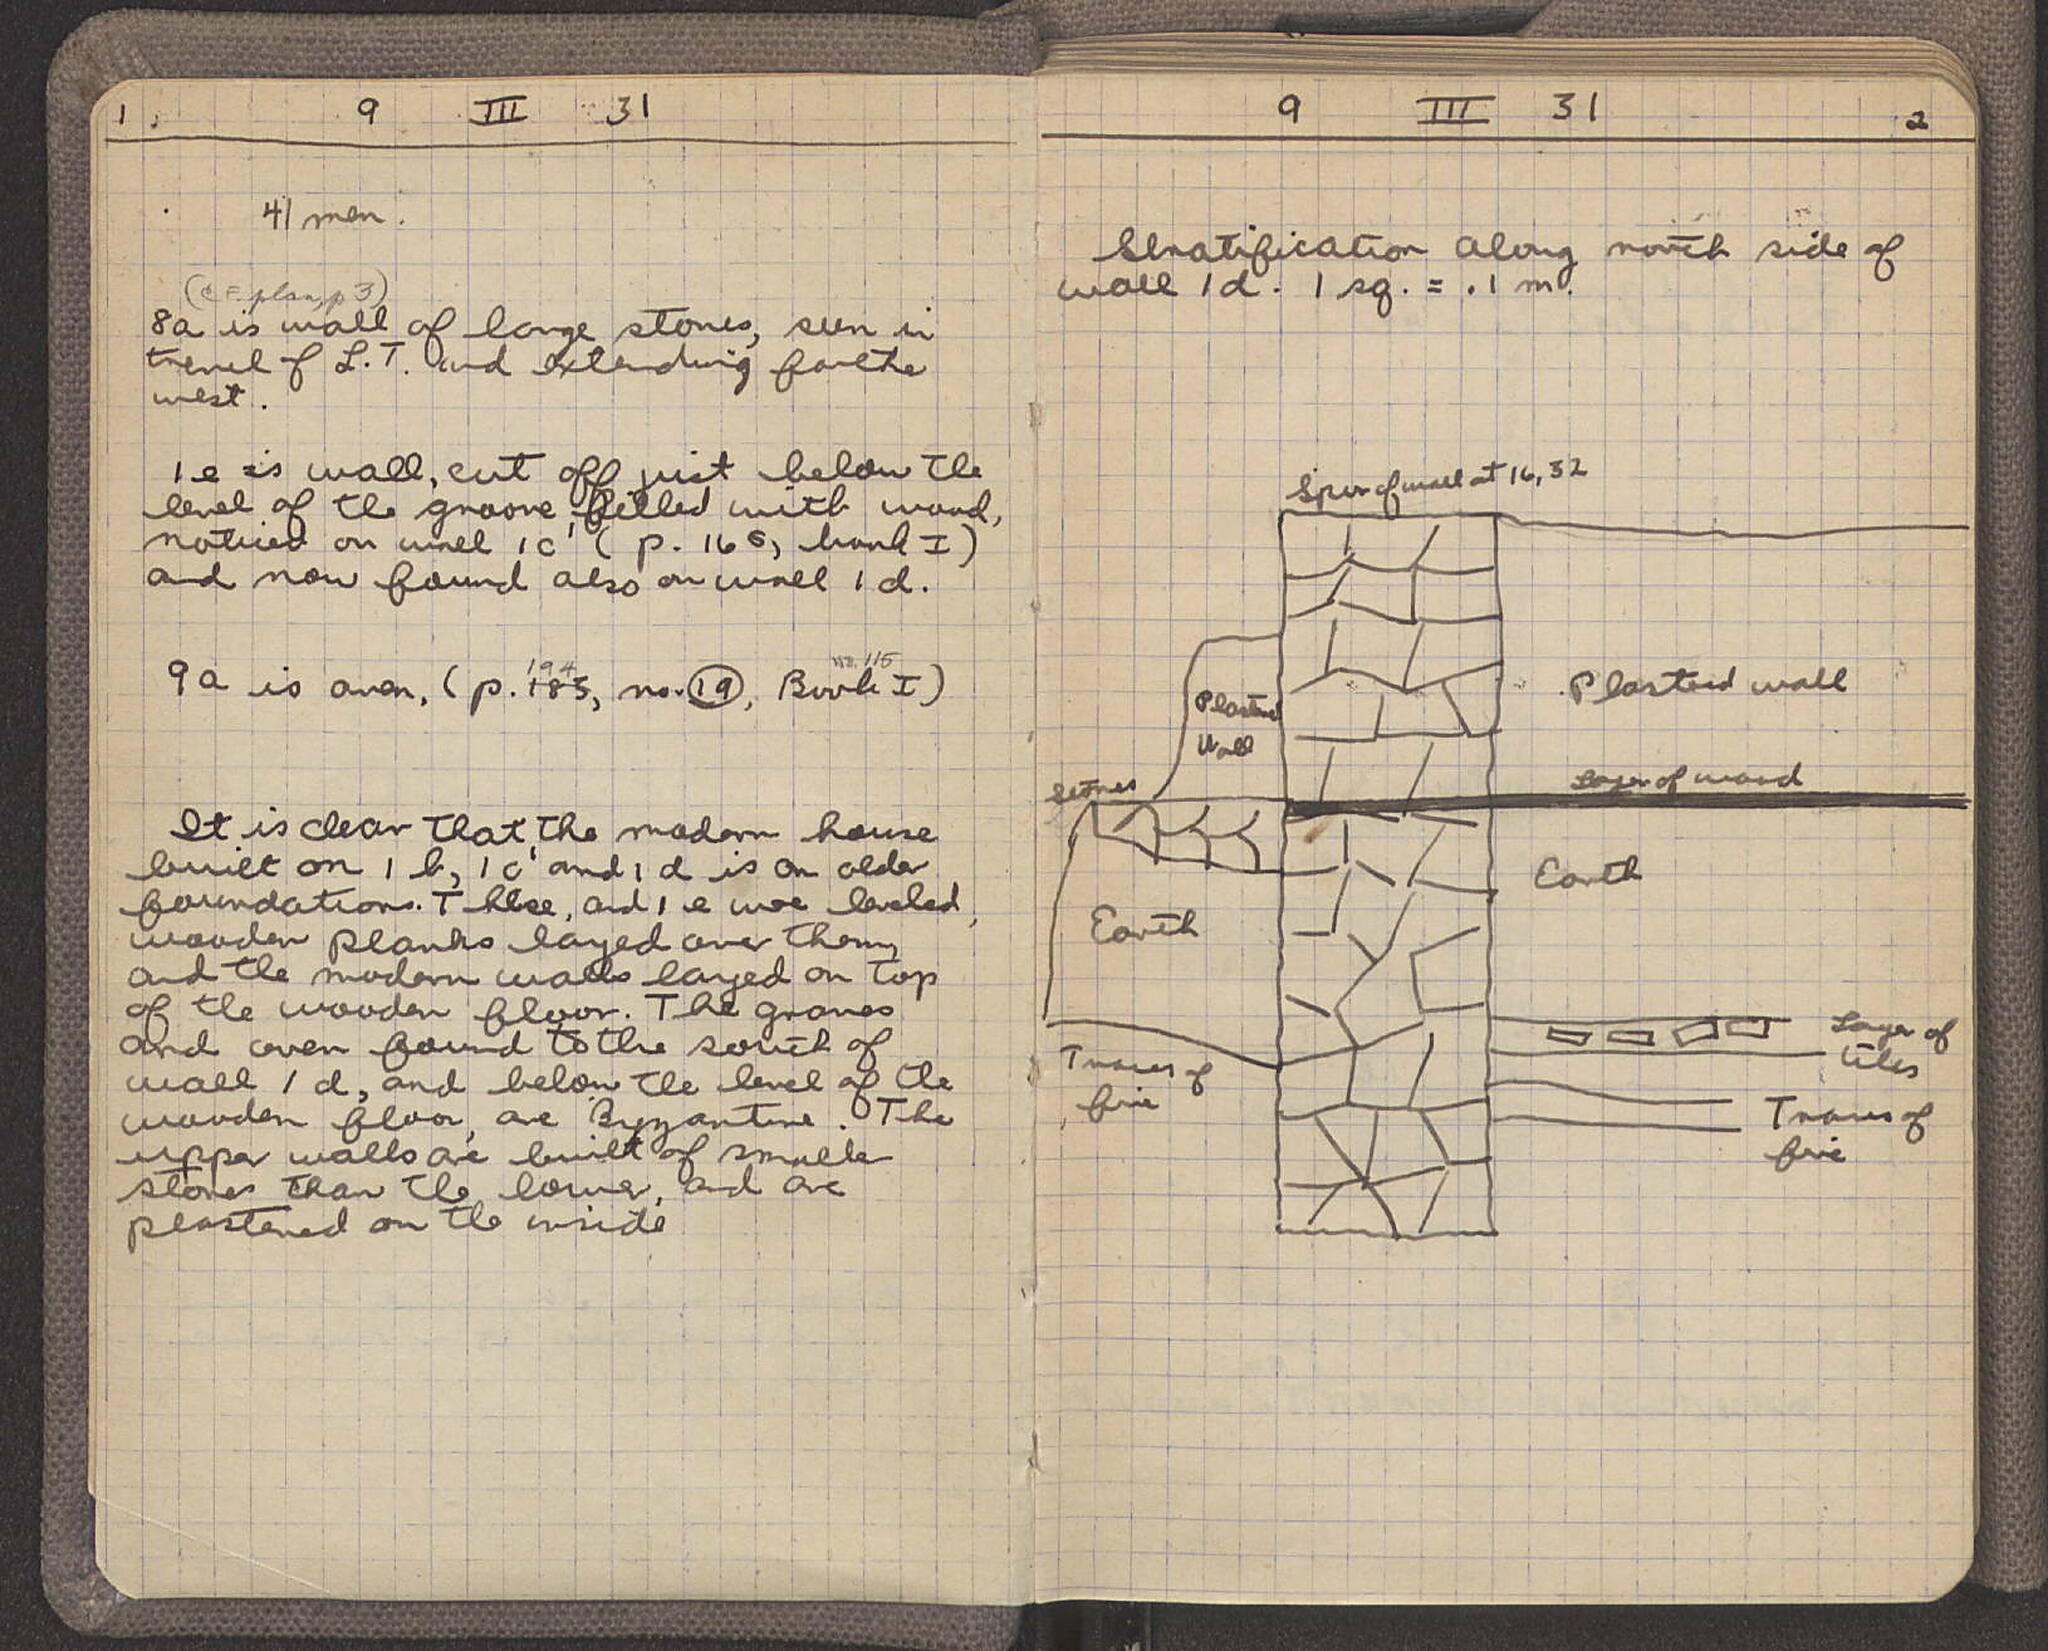 1 9 III 31
41 men.
(cf. plan, p 3)
8a is wall of large stones, seen in
trench of L.T. and extending farther
west.
1e is wall, cut off just below the
level of the groove filled with wood,
noticed on wall 1c' (p. 166, book I)
and now found also on wall 1d.
194 no. 115
9a is oven, (p. 185, no. 19, Book I)
It is clear that the modern house
built on 1b, 1c' and 1d is on older
foundations. These, and 1e were leveled,
wooden planks layed over them,
and the modern walls layed on top
of the wooden floor. The graves
and oven found to the south of
wall 1d, and below the level of the
wooden floor, are Byzantine. The
upper walls are built of smaller
stones than the lower, and are
plastered on the inside
9 III 31 2
Stratification along north side of
wall 1d. 1 sq. = .1 m.
Spur of wall at 16, 32
Plastered wall
Plastered
Wall
Layer of wood
Stones
Earth
Earth
Layer of
tiles
Traces of
fire
Traces of
fire